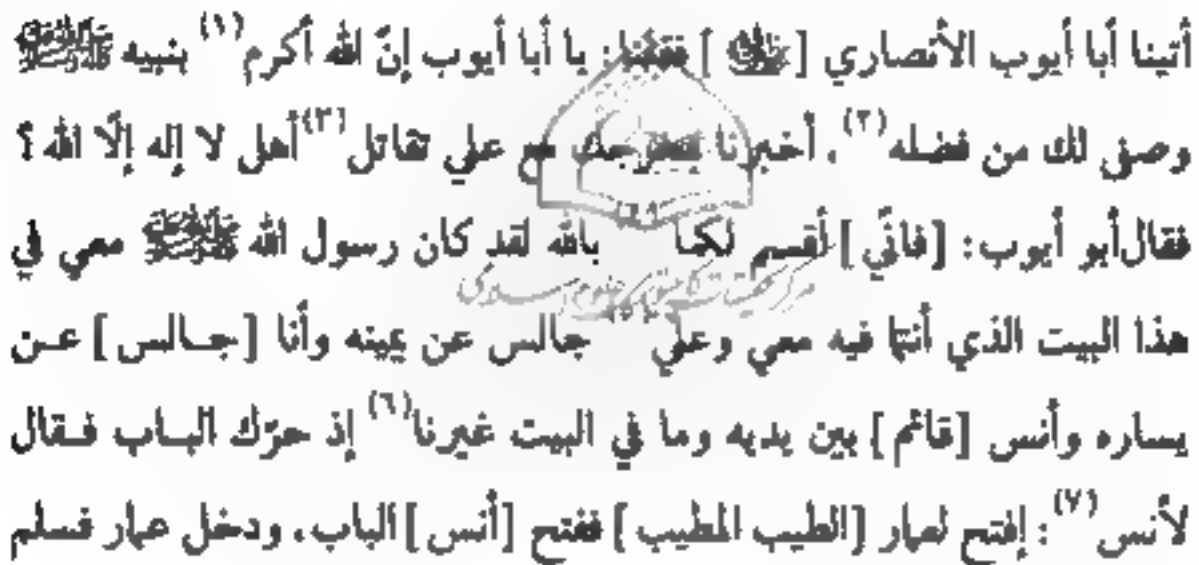 أتينا أبا أيوب الأنصاري [ﷺ] فقلنا: يا أبا أيوب إنّ الله أكرم(١) بنبيه ﷺ
وصفى لك من فضله(٢)، أخبرنا بمخرجك مع علي تقاتل(٣) أهل لا إله إلّا الله ؟
فقال أبو أيوب: [فانّي] أقسم لكما بالله لقد كان رسول الله ﷺ معي في
هذا البيت الذي أنتما فيه معي وعلي جالس عن يمينه وأنا [جـالس] عـن
يساره وأنس [قائم] بين يديه وما في البيت غيرنا(٦) إذ حرّك البـاب فـقال
لأنس(٧): إفتح لعمار [الطيب المطيب] ففتح [أنس] الباب، ودخل عمار فسلم